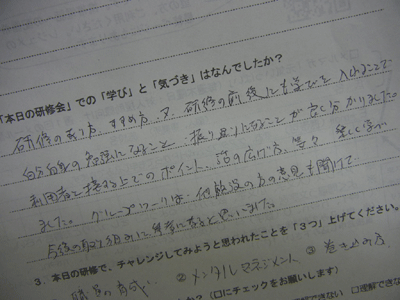 「本日の研修会」での「学び」と「気づき」はなんでしたか？
研修のあり方、すすめ方、又、研修の前後にも学びを入れることで
自分自身の勉強になること、振り返りになることが良く分かりました。
利用者と接する上でのポイント、話の広げ方、等々 楽しく学べ
ました。グループワークは、他施設の方の意見も聞けて
今後の取り組みに参考になると思いました。
3．本日の研修で、チャレンジしてみようと思われたことを「３つ」上げてください。
の育成 ②メンタルマネジメント ③巻き込み方
か？（□にチェックをお願いします）
できない □理解できな